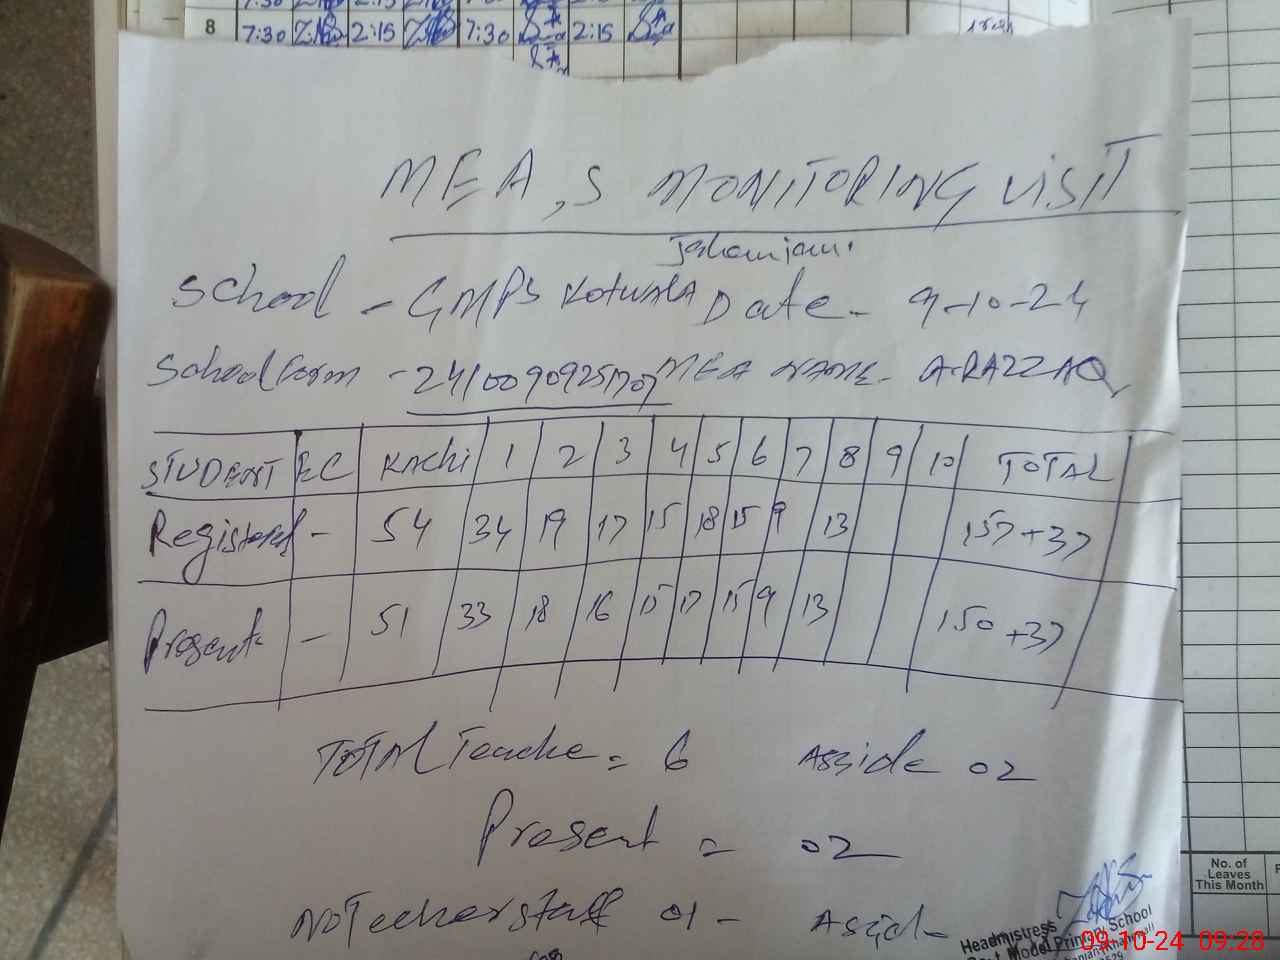 8 7:30 2:15 7:30 2:15
MEA,S MONITORING VISIT
Jahanian.
School - GMPS KOTWALA Date - 9-10-24
School Form - MEA NAME - A.RAZZAQ
STUDENT EC KACHI 1 2 3 4 5 6 7 8 9 10 TOTAL
Registered - 54 34 19 17 15 18 15 9 13 157+37
Present - 51 33 18 16 15 17 15 9 13 150+37
TOTAL Teache = 6 Asside 02
Present = 02
NoTeecher staff 01 - Asid-
No. of
Leaves
This Month
Headmistress
Govt. Model Primary School
09-10-24 09:28